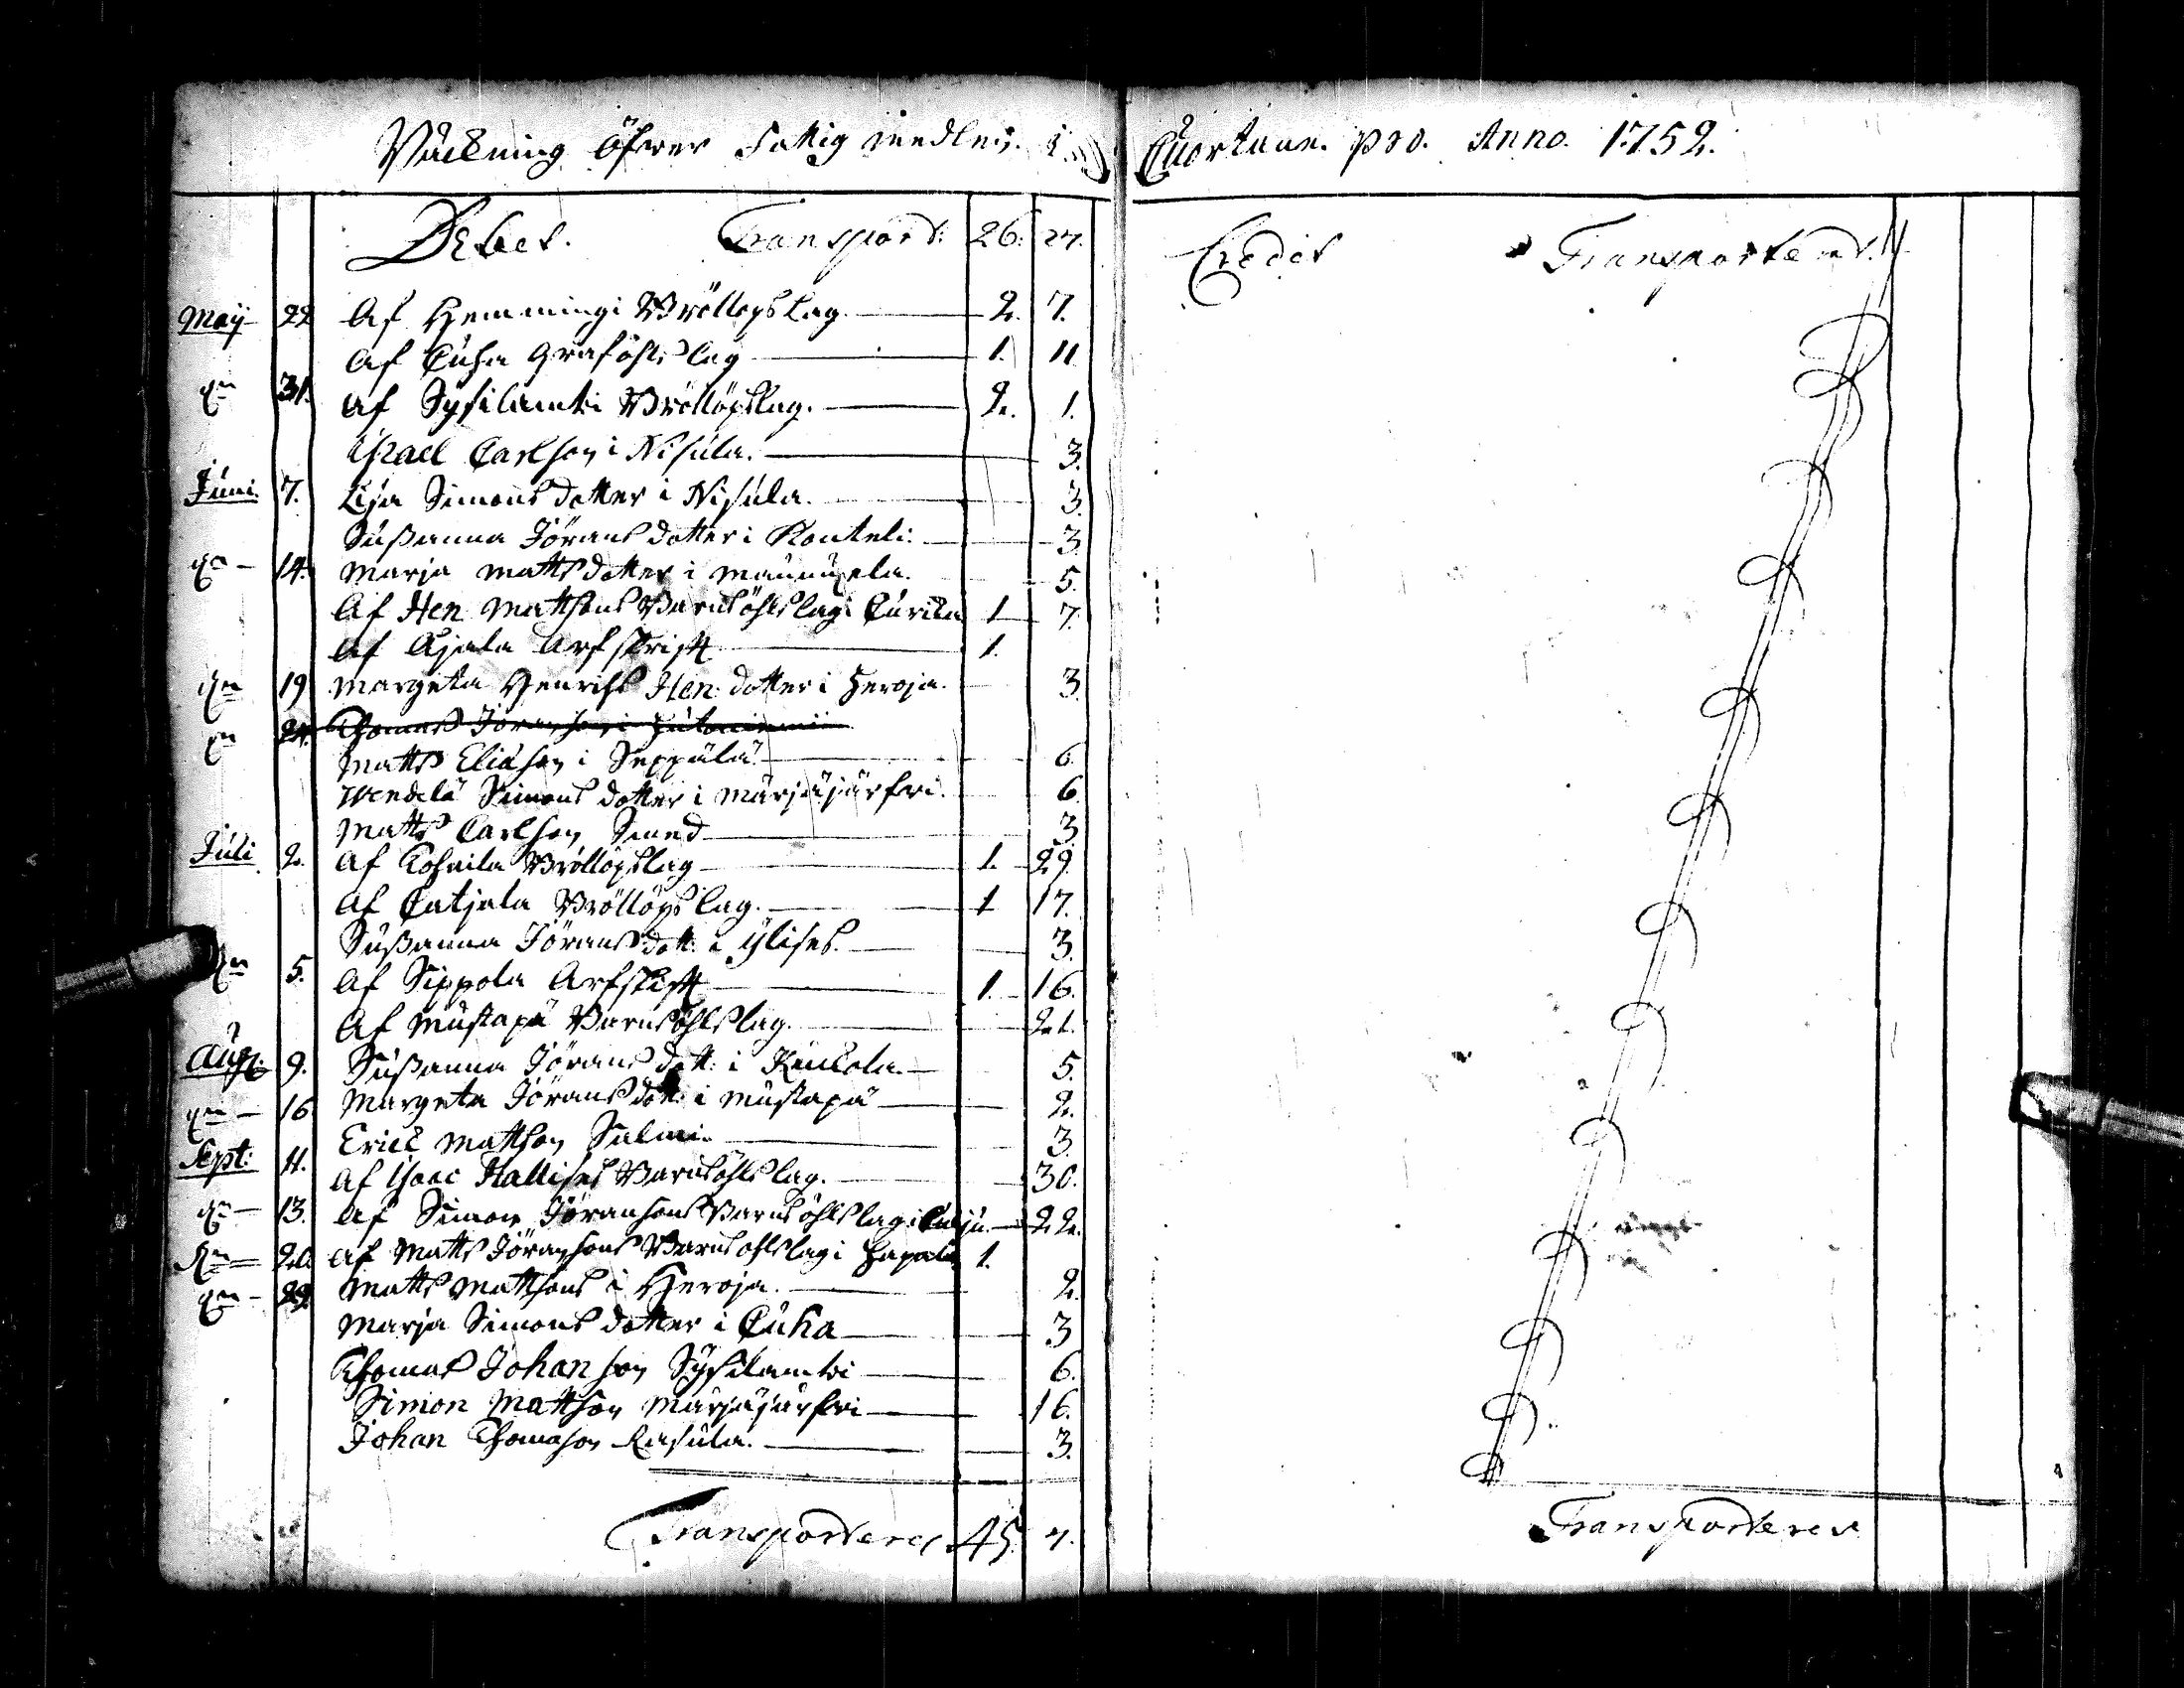 Räckning öfwer Fattig medlen. i Cuortane. pro. Anno. 1752.
Debet. Transport: 26. 27.
Maij 22 Af Hemmingi Bröllopslag. 2. 7.
Af Cuha Graföhlslag 1. 11
31. Af Sysilambi Bröllöpslag. 2. 1.
Israel Carlson i Nisula. 3.
Juni. 7. Lisa Simons dotter i Nisula. 3.
Susanna Jörans dotter i Konteli. 3.
14. Marja Matts dotter i Maunuxela. 5.
Af Hen Mattsons Barnsöhlslag i 1 7.
Af Arfskift 1.
19 Margeta Henrichs Hen: dotter i Heroja. 3.
24. Thomas Joranson i
Matts Eliason i Seppälä. 6.
Wendela Simons dotter i Märjäjärfwi. 6.
Matts Carlson Smed 3.
Juli 2. Af Kohnila Bröllöpslag 1. 29.
Af Catjala Bröllöps lag. 1 17.
Susanna Jörans dott: i Ylises. 3.
5. Af Sippola Arfskift 1. 16.
Af Mustapä Barnsöhlslag. 21.
Aug: 9. Susanna Jörans dott: i 5.
16 Margeta Jörans dott: i Mustapä 2.
Erick Mattson Salmi. 3.
Sept: 11. Af Isaac Kallises Barnsöhls lag. 30.
13. Af Simon Jöransons Barnsöhlslag i 22.
20. Af Matts Jöransons Barnsohlslag i Hapala 1.
29. Matts Mattsons i Heroja. 2.
Marja Simons dotter i Cuha 3
Thomas Johan son Sysilambi 6.
Simon Mattson Märjäjärfwi 16.
Johan Thomason Rasula. 3.
Transporteres 45. 4.
Credit Transporterad.
Transporteres